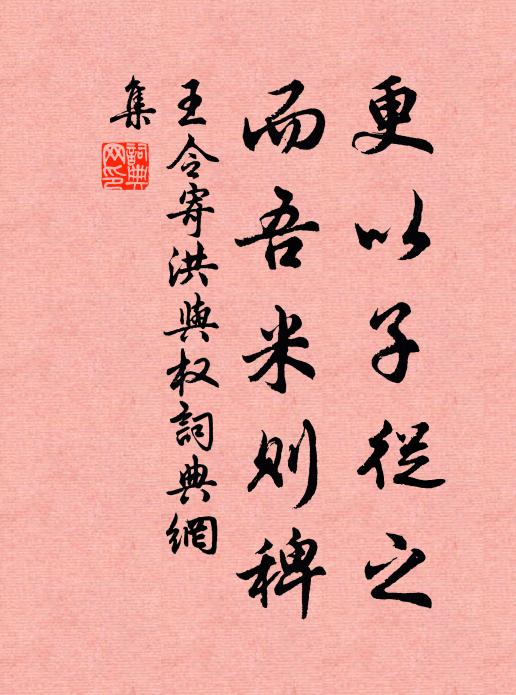 更以子從之
而吾米則稗
王令寄洪與权詞典網
集
詞典網印